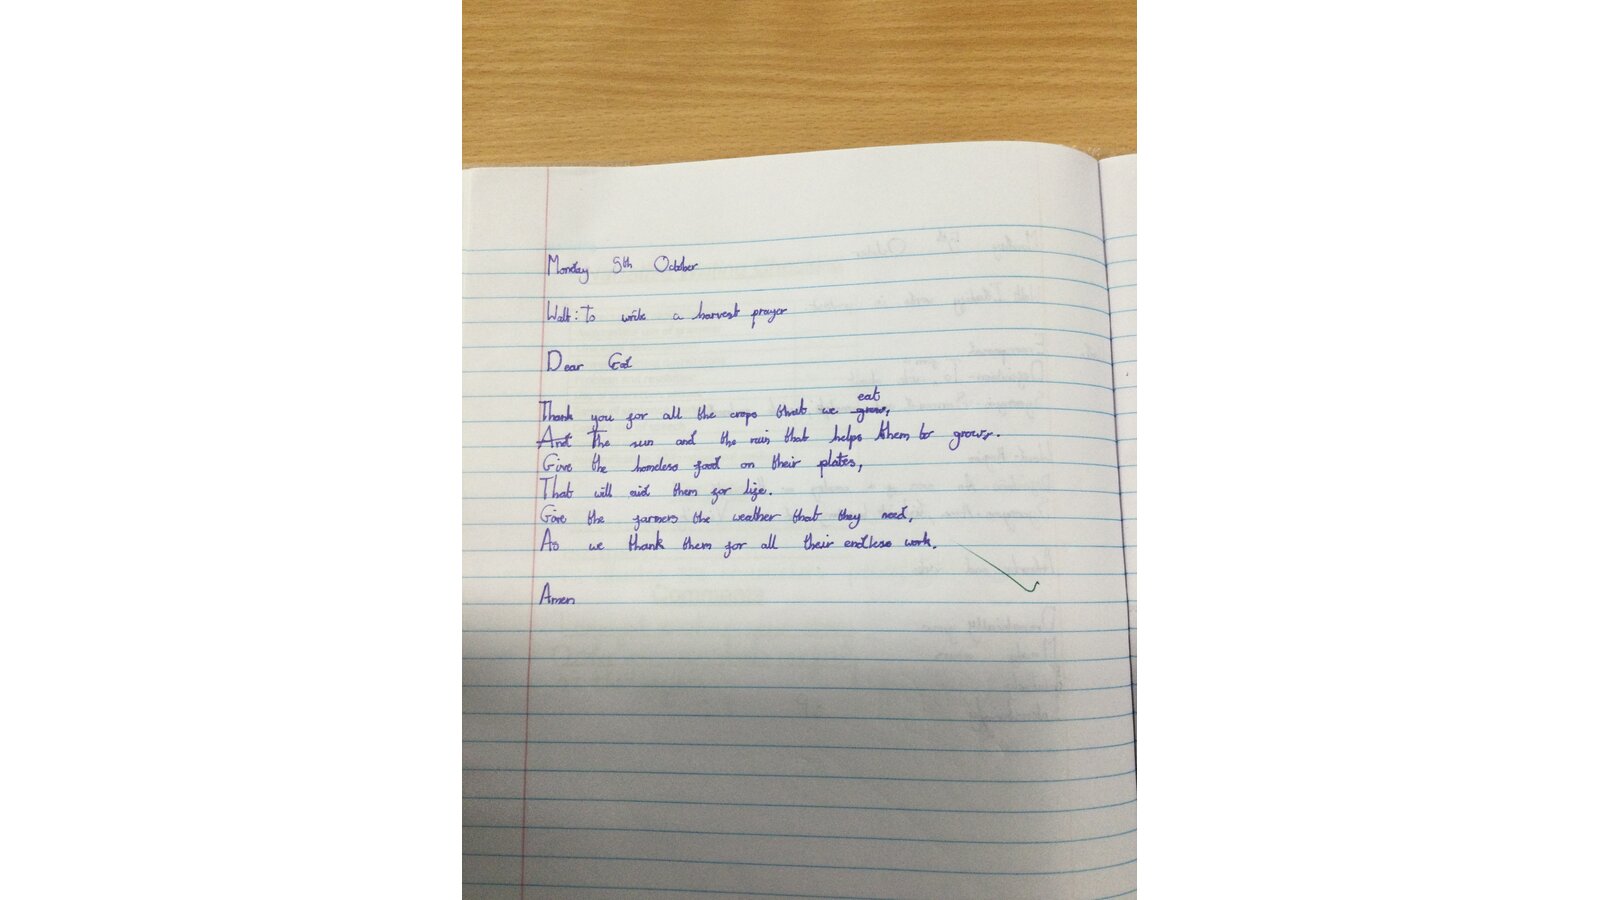 Monday 5th October
Walt: To write a harvest prayer
Dear God
Thank you for all the crops that we grow, eat
And The sun and the rain that helps them to grow.
Give the homeless food on their plates,
That will aid them for life.
Give the farmers the weather that they need,
As we thank them for all their endless work.
Amen